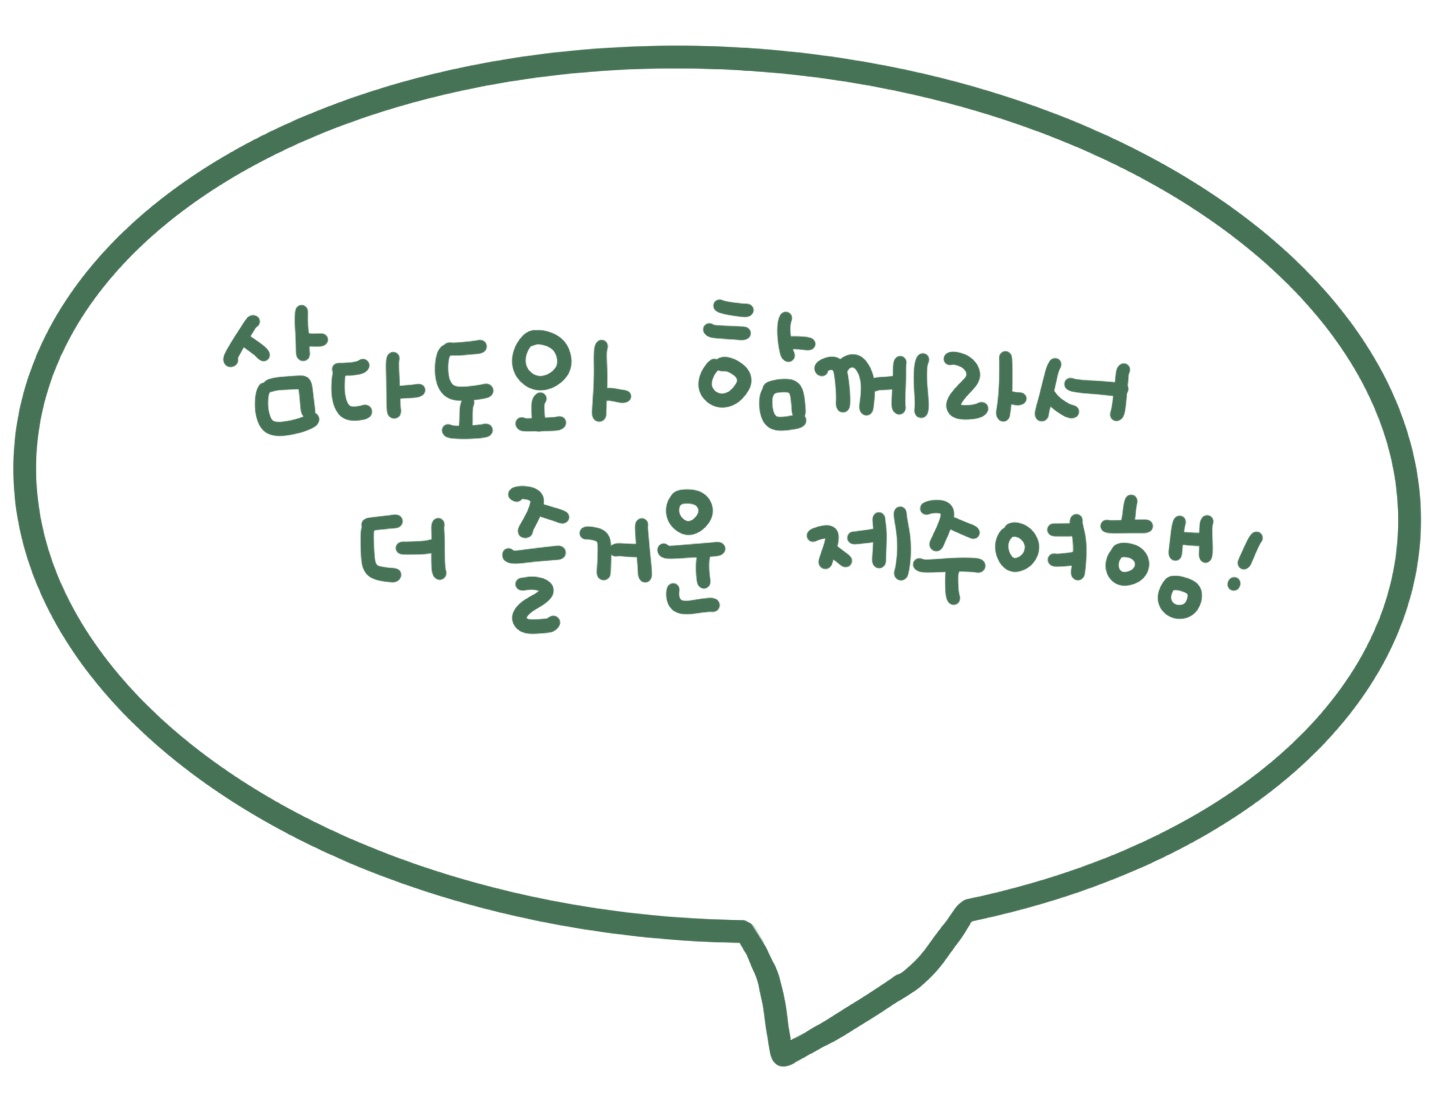 삼다도와 함께라서
더 즐거운 제주여행!